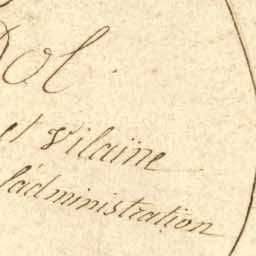 Dol
et Vilaine
l'administration